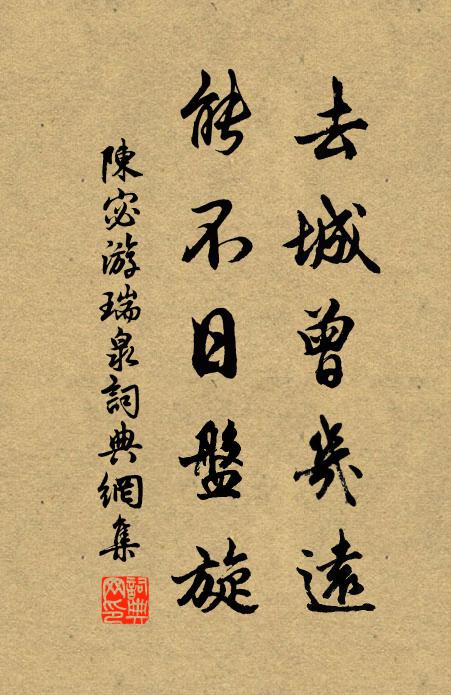 去城曾幾遠
能不日盤旋
陳宓游瑞泉詞典網集
詞典網印